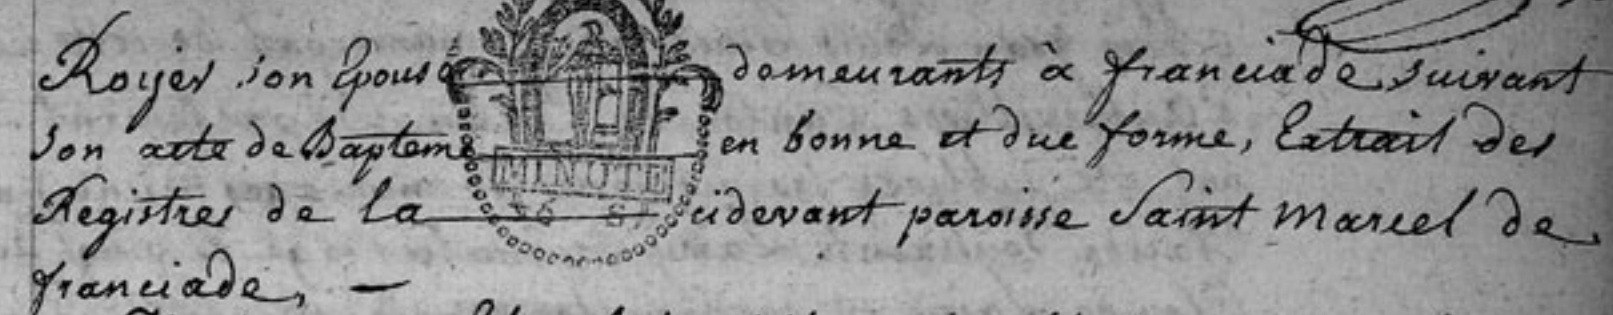 Royer son Epouse demeurants à franciade suivant
son acte de Bapteme en bonne et due forme, Extrait des
MINUTE
Registres de la cidevant paroisse Saint Marcel de
franciade, —